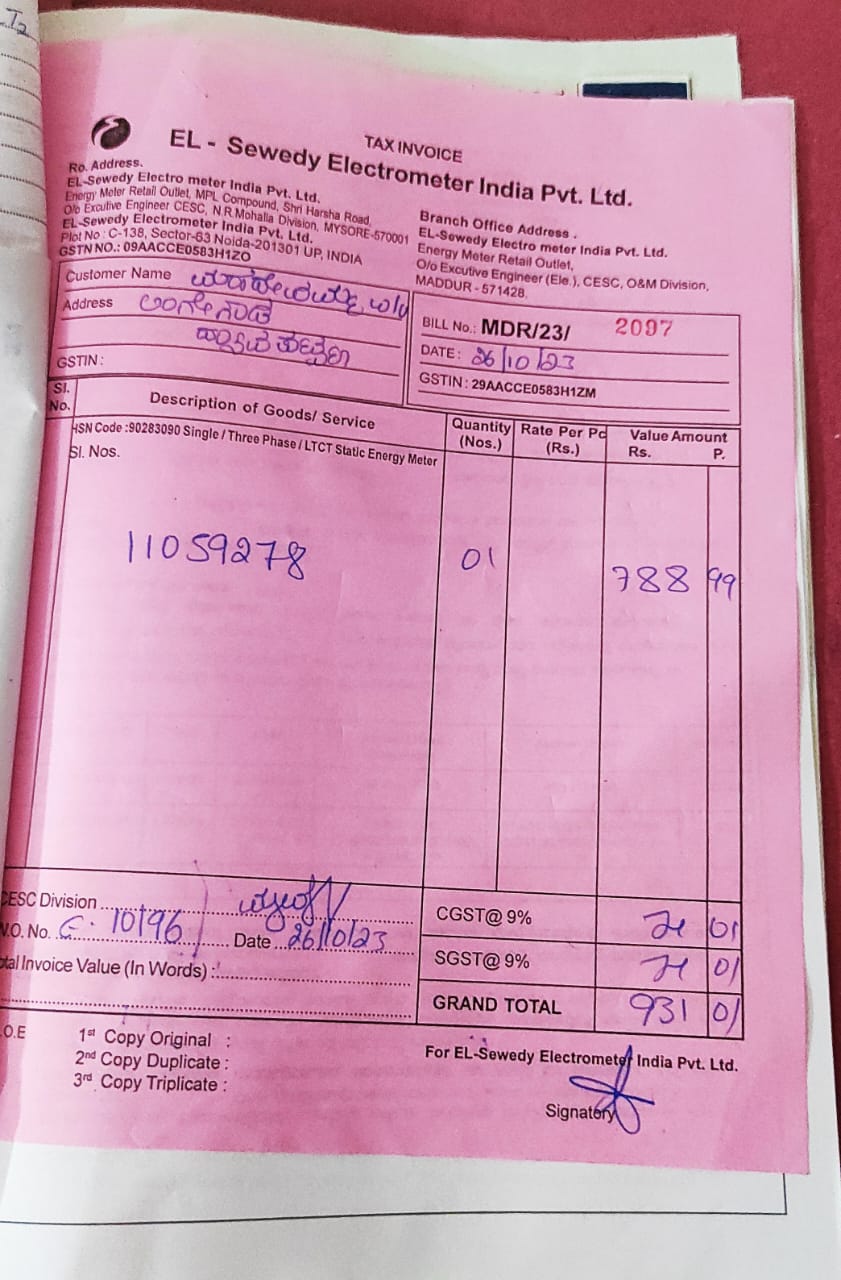 TAX INVOICE
EL - Sewedy Electrometer India Pvt. Ltd.
Ro. Address.
EL-Sewedy Electro meter India Pvt. Ltd.
Energy Meter Retail Outlet, MPL Compound, Shri Harsha Road,
O/o Excutive Engineer CESC, N.R.Mohalla Division, MYSORE-570001
EL-Sewedy Electrometer India Pvt. Ltd.
Plot No : C-138, Sector-63 Noida-201301 UP, INDIA
GSTN NO.: 09AACCE0583H1ZO
Branch Office Address .
EL-Sewedy Electro meter India Pvt. Ltd.
Energy Meter Retail Outlet,
O/o Excutive Engineer (Ele.), CESC, O&M Division,
MADDUR - 571428.
Customer Name
Address
GSTIN :
BILL No.: MDR/23/ 2097
DATE : 26/10/23
GSTIN : 29AACCE0583H1ZM
Sl. No. Description of Goods/ Service Quantity (Nos.) Rate Per Pc (Rs.) Value Amount Rs. P.
HSN Code :90283090 Single / Three Phase / LTCT Static Energy Meter
Sl. Nos.
11059278 01 788 99
CESC Division
CGST@ 9% 71 01
W.O. No. 10196 Date 26/10/23
SGST@ 9% 71 01
Total Invoice Value (In Words) :
GRAND TOTAL 931 01
.O.E
1st Copy Original :
2nd Copy Duplicate :
3rd Copy Triplicate :
For EL-Sewedy Electrometer India Pvt. Ltd.
Signatory